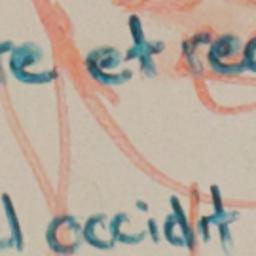 re et rec
d occidit